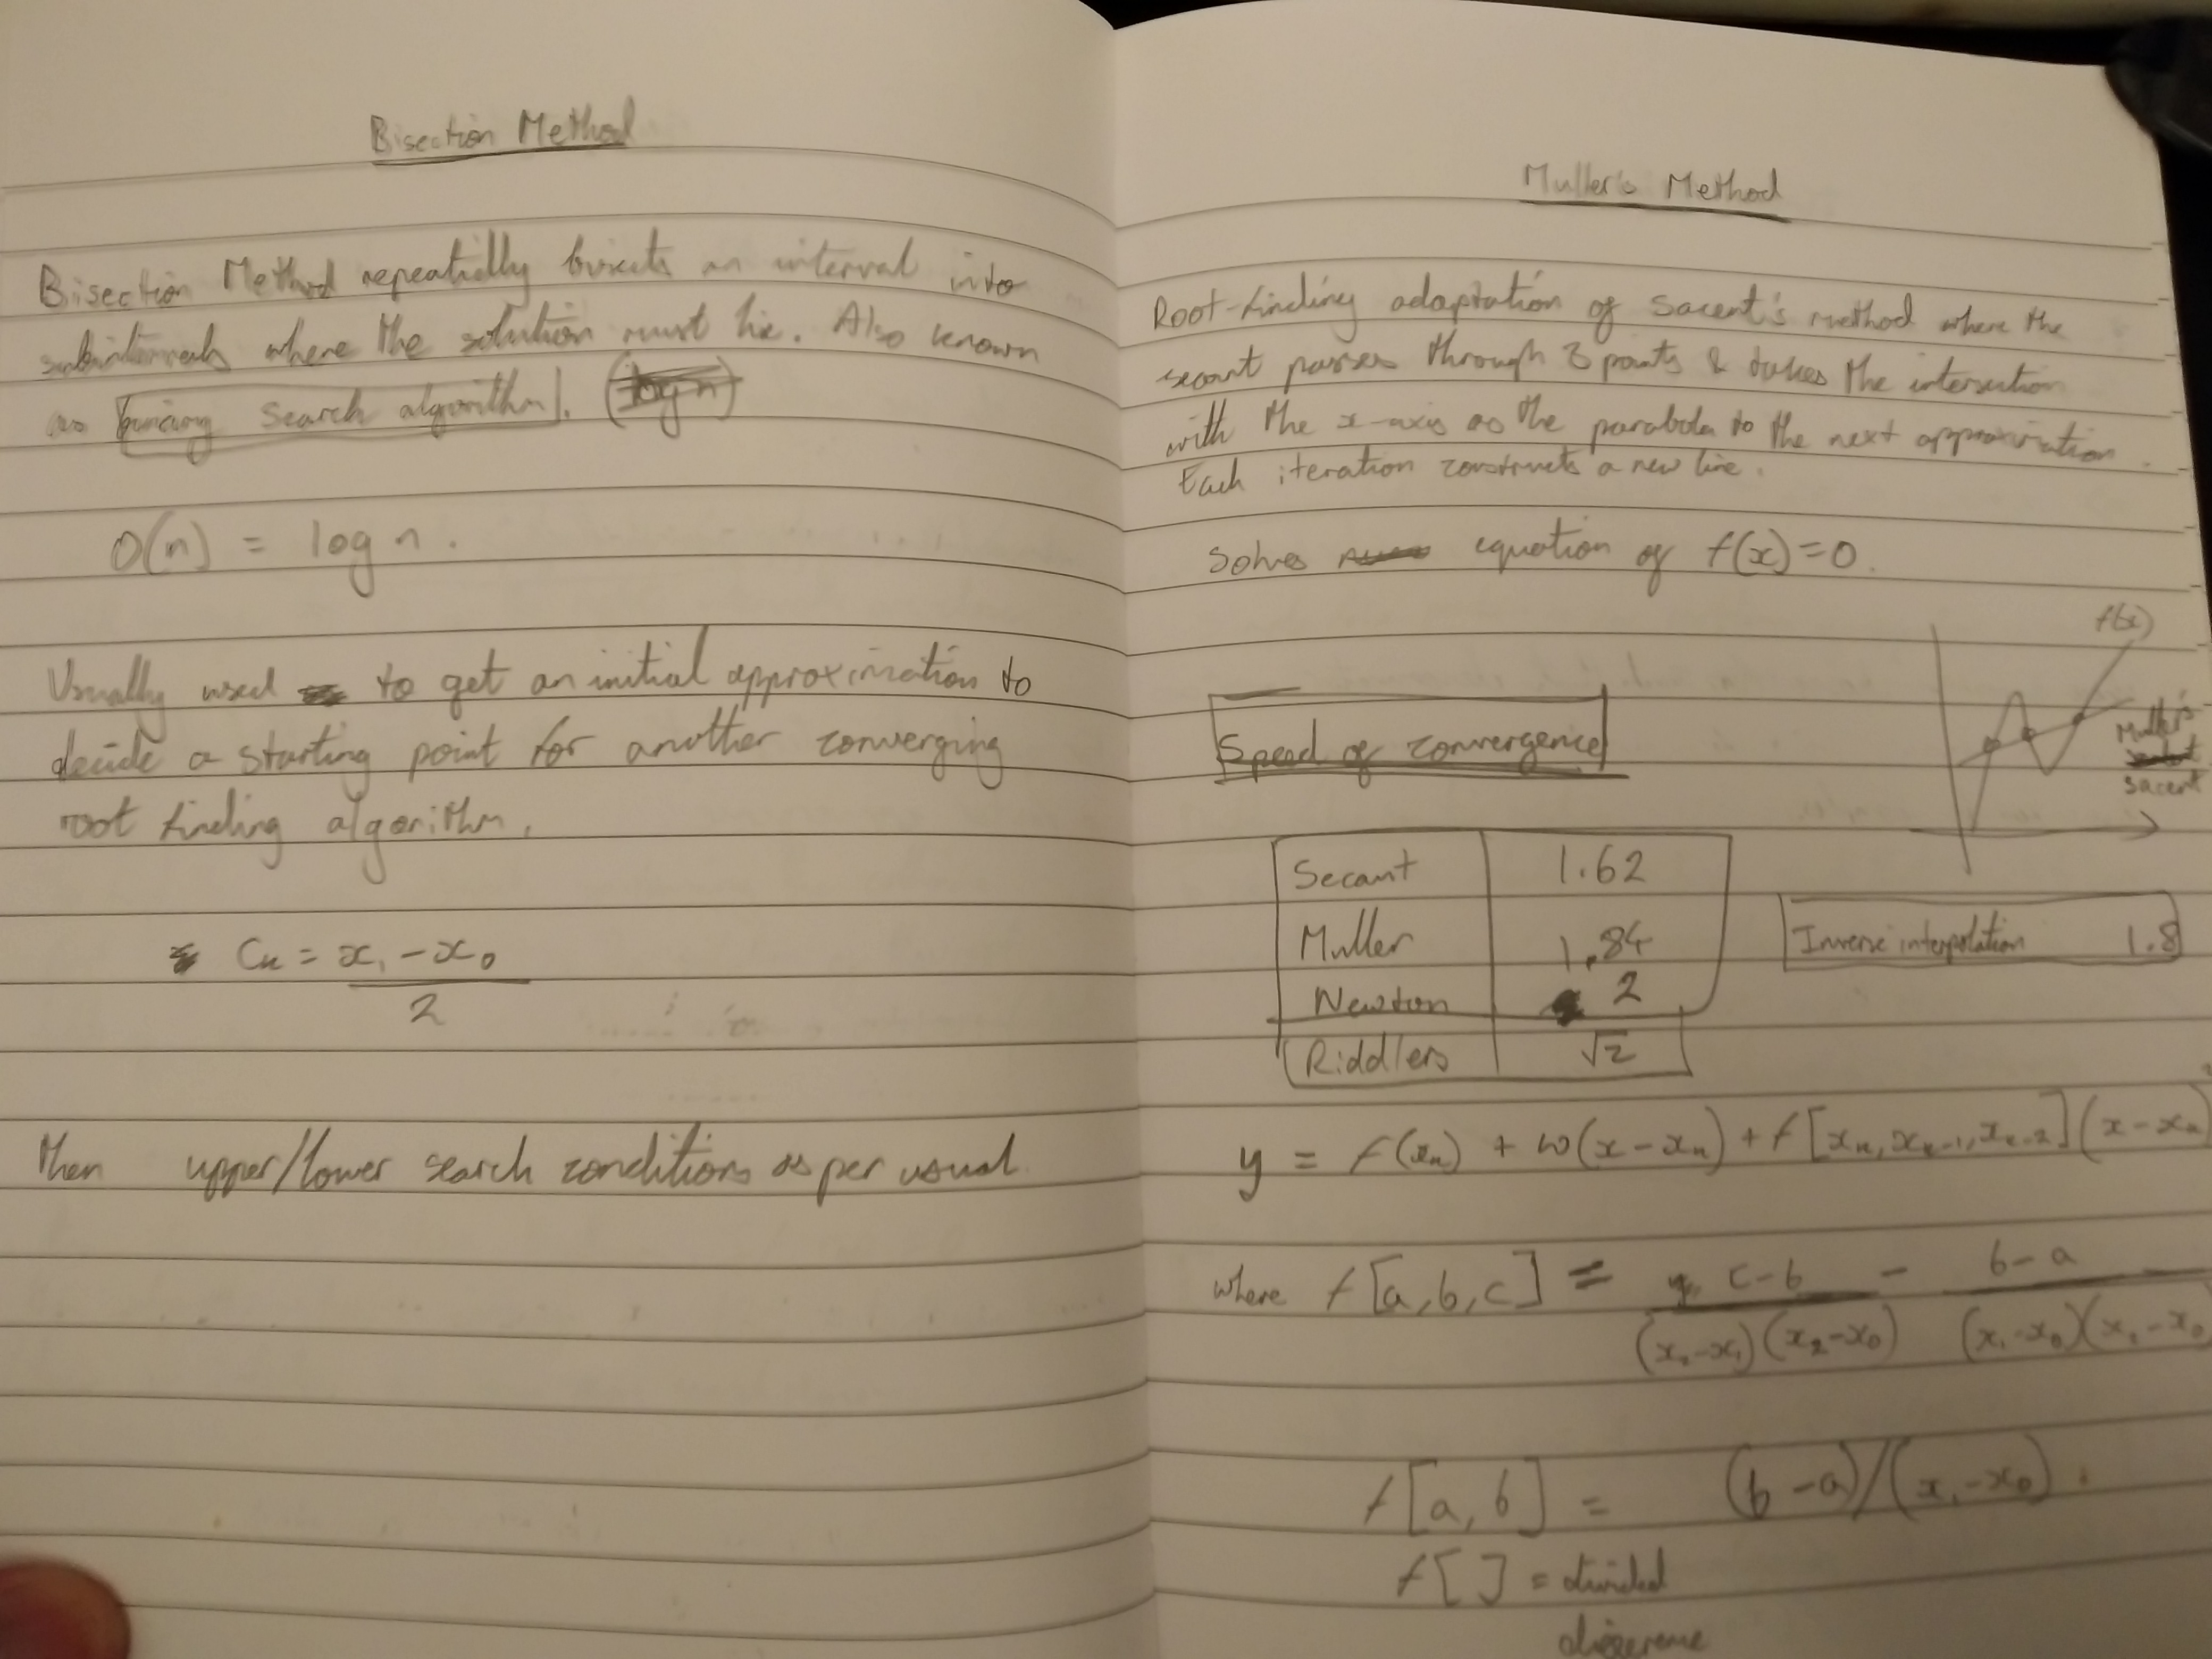 Bisection Method
Bisection Method repeatidly bisects an interval into
subintervals where the solution must lie. Also known
as binary search algorithm. (log n)
O(n) = log n.
Usually used to get an initial approximation to
decide a starting point for another converging
root finding algorithm.
Cn = x₁ - x₀
2
then upper/lower search conditions as per usual
Muller's Method
Root-finding adaptation of Sacent's method where the
secant passes through 3 points & takes the intersection
with the x-axis as the parabola to the next approximation.
Each iteration constructs a new line.
Solves equation of f(x)=0.
f(x)
Muller's
sacent
Speed of convergence
Secant 1.62
Muller 1.84
Newton 2
Riddlers √2
Inverse interpolation 1.8
y = f(xn) + w(x-xn) + f[xn, xn-1, xn-2](x-xn)
where f[a,b,c] = c-b - b-a
(x₂-x₁)(x₂-x₀) (x₁-x₀)(x₁-x₀
f[a,b] = (b-a)/(x₁-x₀).
f[ ] = divided
difference